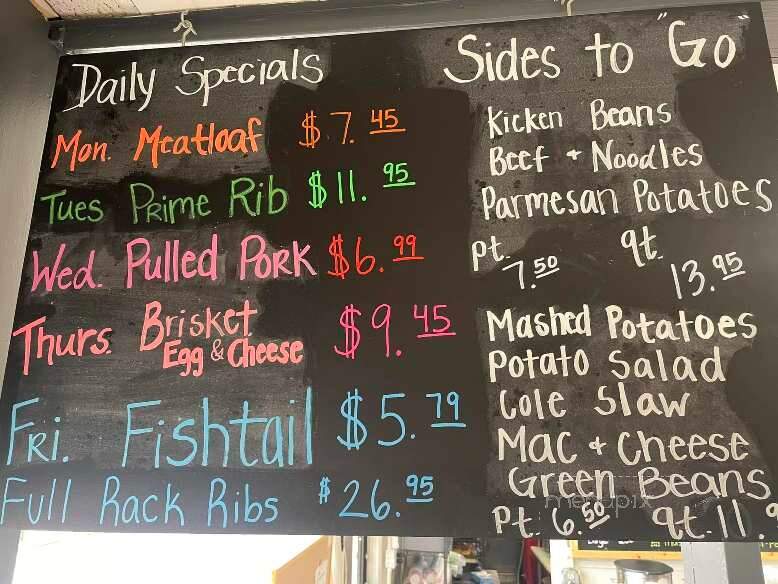 Daily Specials
Mon. Meatloaf $7.45
Tues Prime Rib $11.95
Wed. Pulled Pork $6.99
Thurs. Brisket Egg & Cheese $9.45
Fri. Fishtail $5.79
Full Rack Ribs $26.95
Sides to "Go"
Kicken Beans
Beef + Noodles
Parmesan Potatoes
pt. 7.50 qt. 13.95
Mashed Potatoes
Potato Salad
Cole Slaw
Mac + Cheese
Green Beans
menupix
Pt. 6.50 qt. 11.9